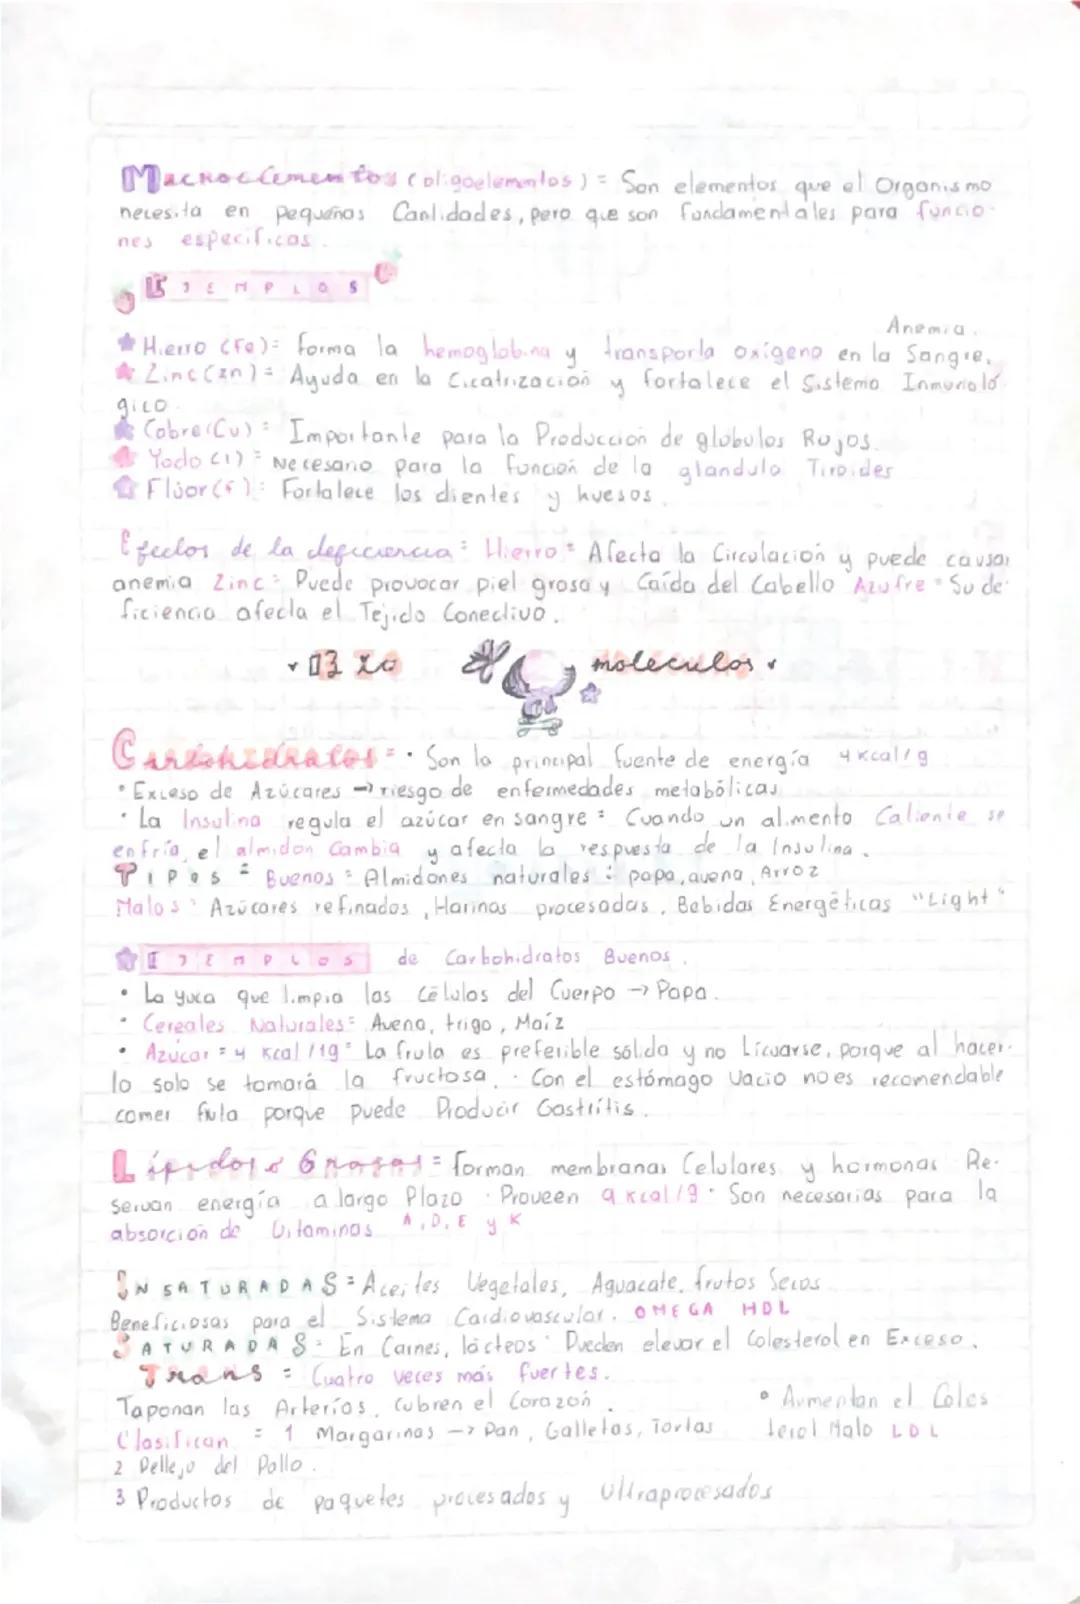 Macroelementos (oligoelementos) = Son elementos que el Organismo
necesita en pequeñas Cantidades, pero que son fundamentales para funcio-
nes especificas.
EJEMPLOS
Anemia.
Hierro (Fe)= forma la hemoglobina y transporta oxígeno en la Sangre.
Zinc (Zn)= Ayuda en la Cicatrización y fortalece el Sistema Inmunoló-
gico.
Cobre (Cu)= Importante para la Producción de globulos Rojos.
Yodo (I) = Necesario para la función de la glandula Tiroides
Flúor (F)= Fortalece los dientes y huesos.
Efectos de la deficiencia= Hierro= Afecta la Circulación y puede causar
anemia Zinc= Puede provocar piel grasa y Caída del Cabello Azufre= Su de-
ficiencia afecta el Tejido Conectivo.
moleculas
Carbohidratos = • Son la principal fuente de energía 4 Kcal/g
• Exceso de Azúcares → riesgo de enfermedades metabólicas
• La Insulina regula el azúcar en sangre = Cuando un alimento Caliente se
enfría, el almidon Cambia y afecta la respuesta de la Insulina.
TIPOS = Buenos= Almidones naturales : papa, avena, Arroz
Malos= Azúcares refinados, Harinas procesadas, Bebidas Energéticas "Light"
EJEMPLOS de Carbohidratos Buenos.
• La yuca que limpia las Células del Cuerpo → Papa.
• Cereales Naturales= Avena, trigo, Maíz
• Azúcar = 4 Kcal/1g= La fruta es preferible sólida y no Licuarse, porque al hacer-
lo solo se tomará la fructosa. · Con el estómago Vacio no es recomendable
comer fruta porque puede Producir Gastritis.
Lípidos o Grasas= forman membranas Celulares y hormonas Re-
servan energía a largo Plazo · Proveen 9 Kcal/g · Son necesarias para la
absorción de Vitaminas A, D, E y K
INSATURADAS= Aceites Vegetales, Aguacate, frutos Secos
Beneficiosas para el Sistema Cardiovascular. OMEGA HDL
SATURADAS= En Carnes, lácteos· Pueden elevar el Colesterol en Exceso.
Trans = Cuatro veces más fuertes.
Taponan las Arterias, Cubren el Corazón. • Aumentan el Coles
Clasifican = 1 Margarinas → Pan, Galletas, Tortas terol Malo LDL
2 Pellejo del Pollo.
3 Productos de paquetes procesados y Ultraprocesados